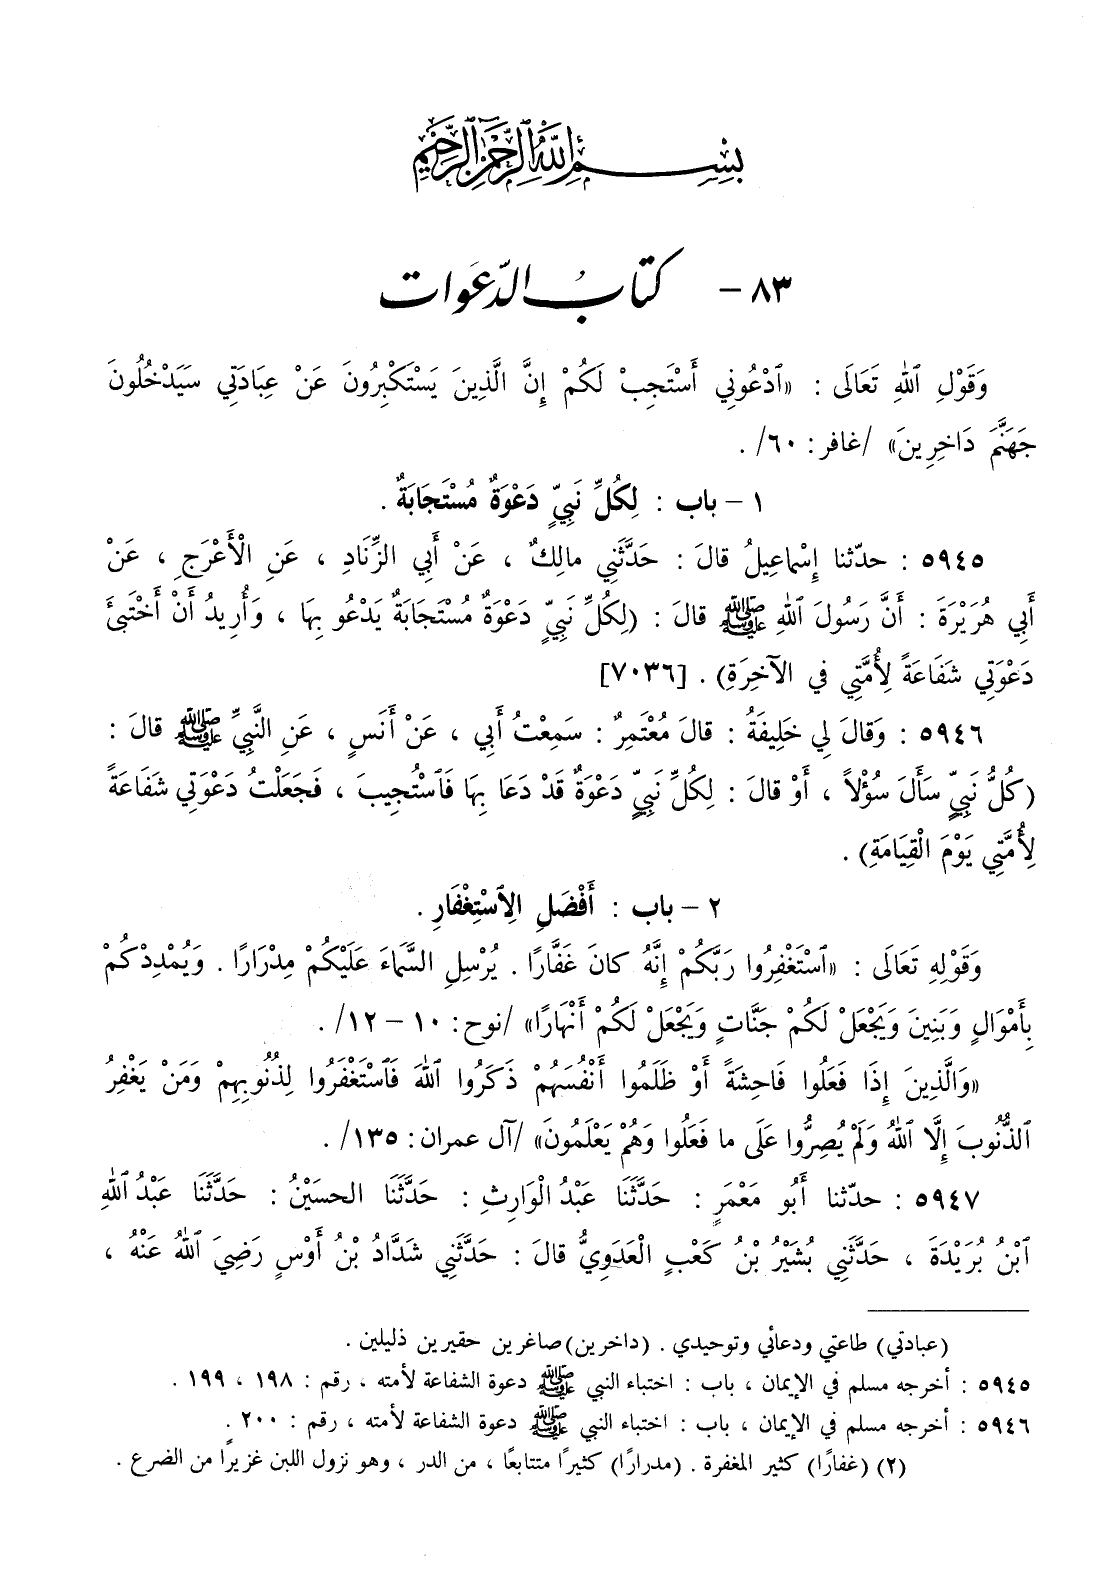 بِسْمِ اللهِ الرَّحْمٰنِ الرَّحِيمِ
٨٣ - كتابُ الدّعَوات
وَقَوْلِ ٱللهِ تَعَالَى : «ٱدْعُونِي أَسْتَجِبْ لَكُمْ إِنَّ الَّذِينَ يَسْتَكْبِرُونَ عَنْ عِبَادَتِي سَيَدْخُلُونَ
جَهَنَّمَ دَاخِرِينَ» /غافر: ٦٠/ .
١ – باب : لِكُلِّ نَبِيٍّ دَعْوَةٌ مُسْتَجَابَةٌ .
٥٩٤٥ : حدّثنا إِسْماعِيلُ قالَ : حَدَّثَنِي مالِكٌ ، عَنْ أَبِي الزِّنَادِ ، عَنِ الْأَعْرَجِ ، عَنْ
أَبِي هُرَيْرَةَ : أَنَّ رَسُولَ ٱللهِ ﷺ قالَ : (لِكُلِّ نَبِيٍّ دَعْوَةٌ مُسْتَجَابَةٌ يَدْعُو بِهَا ، وَأُرِيدُ أَنْ أَخْتَبِئَ
دَعْوَتِي شَفَاعَةً لِأُمَّتِي في الآخِرَةِ) . [٧٠٣٦]
٥٩٤٦ : وَقالَ لِي خَلِيفَةُ : قالَ مُعْتَمِرٌ : سَمِعْتُ أَبِي ، عَنْ أَنَسٍ ، عَنِ النَّبِيِّ ﷺ قالَ :
(كُلُّ نَبِيٍّ سَأَلَ سُؤْلاً ، أَوْ قالَ : لِكُلِّ نَبِيٍّ دَعْوَةٌ قَدْ دَعَا بِهَا فَٱسْتُجِيبَ ، فَجَعَلْتُ دَعْوَتِي شَفَاعَةً
لِأُمَّتِي يَوْمَ الْقِيَامَةِ) .
٢ – باب : أَفْضَلِ الِٱسْتِغْفَارِ .
وَقَوْلِهِ تَعَالَى : «ٱسْتَغْفِرُوا رَبَّكُمْ إِنَّهُ كانَ غَفَّارًا . يُرْسِلِ السَّمَاءَ عَلَيْكُمْ مِدْرَارًا . وَيُمْدِدْكُمْ
بِأَمْوَالٍ وَبَنِينَ وَيَجْعَلْ لَكُمْ جَنَّاتٍ وَيَجْعَلْ لَكُمْ أَنْهَارًا» /نوح: ١٠ – ١٢/ .
«وَالَّذِينَ إِذَا فَعَلُوا فَاحِشَةً أَوْ ظَلَمُوا أَنْفُسَهُمْ ذَكَرُوا ٱللهَ فَٱسْتَغْفَرُوا لِذُنُوبِهِمْ وَمَنْ يَغْفِرُ
ٱلذُّنُوبَ إِلَّا ٱللهُ وَلَمْ يُصِرُّوا عَلَى ما فَعَلُوا وَهُمْ يَعْلَمُونَ» /آل عمران: ١٣٥/ .
٥٩٤٧ : حدّثنا أَبُو مَعْمَرٍ : حَدَّثَنَا عَبْدُ الْوَارِثِ : حَدَّثَنَا الحسَيْنُ : حَدَّثَنَا عَبْدُ ٱللهِ
ٱبْنُ بُرَيْدَةَ ، حَدَّثَنِي بُشَيْرُ بْنُ كَعْبٍ الْعَدَوِيُّ قالَ : حَدَّثَنِي شَدَّادُ بْنُ أَوْسٍ رَضِيَ ٱللهُ عَنْهُ ،
(عبادتي) طاعتي ودعائي وتوحيدي . (داخرين) صاغرين حقيرين ذليلين .
٥٩٤٥ : أخرجه مسلم في الإيمان ، باب : اختباء النبي ﷺ دعوة الشفاعة لأمته ، رقم : ١٩٨ ، ١٩٩ .
٥٩٤٦ : أخرجه مسلم في الإيمان ، باب : اختباء النبي ﷺ دعوة الشفاعة لأمته ، رقم : ٢٠٠ .
(٢) (غفارًا) كثير المغفرة . (مدرارًا) كثيرًا متتابعًا ، من الدر ، وهو نزول اللبن غزيرًا من الضرع .